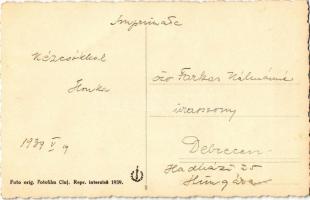 Imprimate
Kézcsókkal
Ilonka
1939 V 9
özv Farkas Kálmánné
úrasszony
Debrecen
Hadházi 25
Hungária
Foto orig. Fotofilm Cluj. Repr. interzisă 1939.